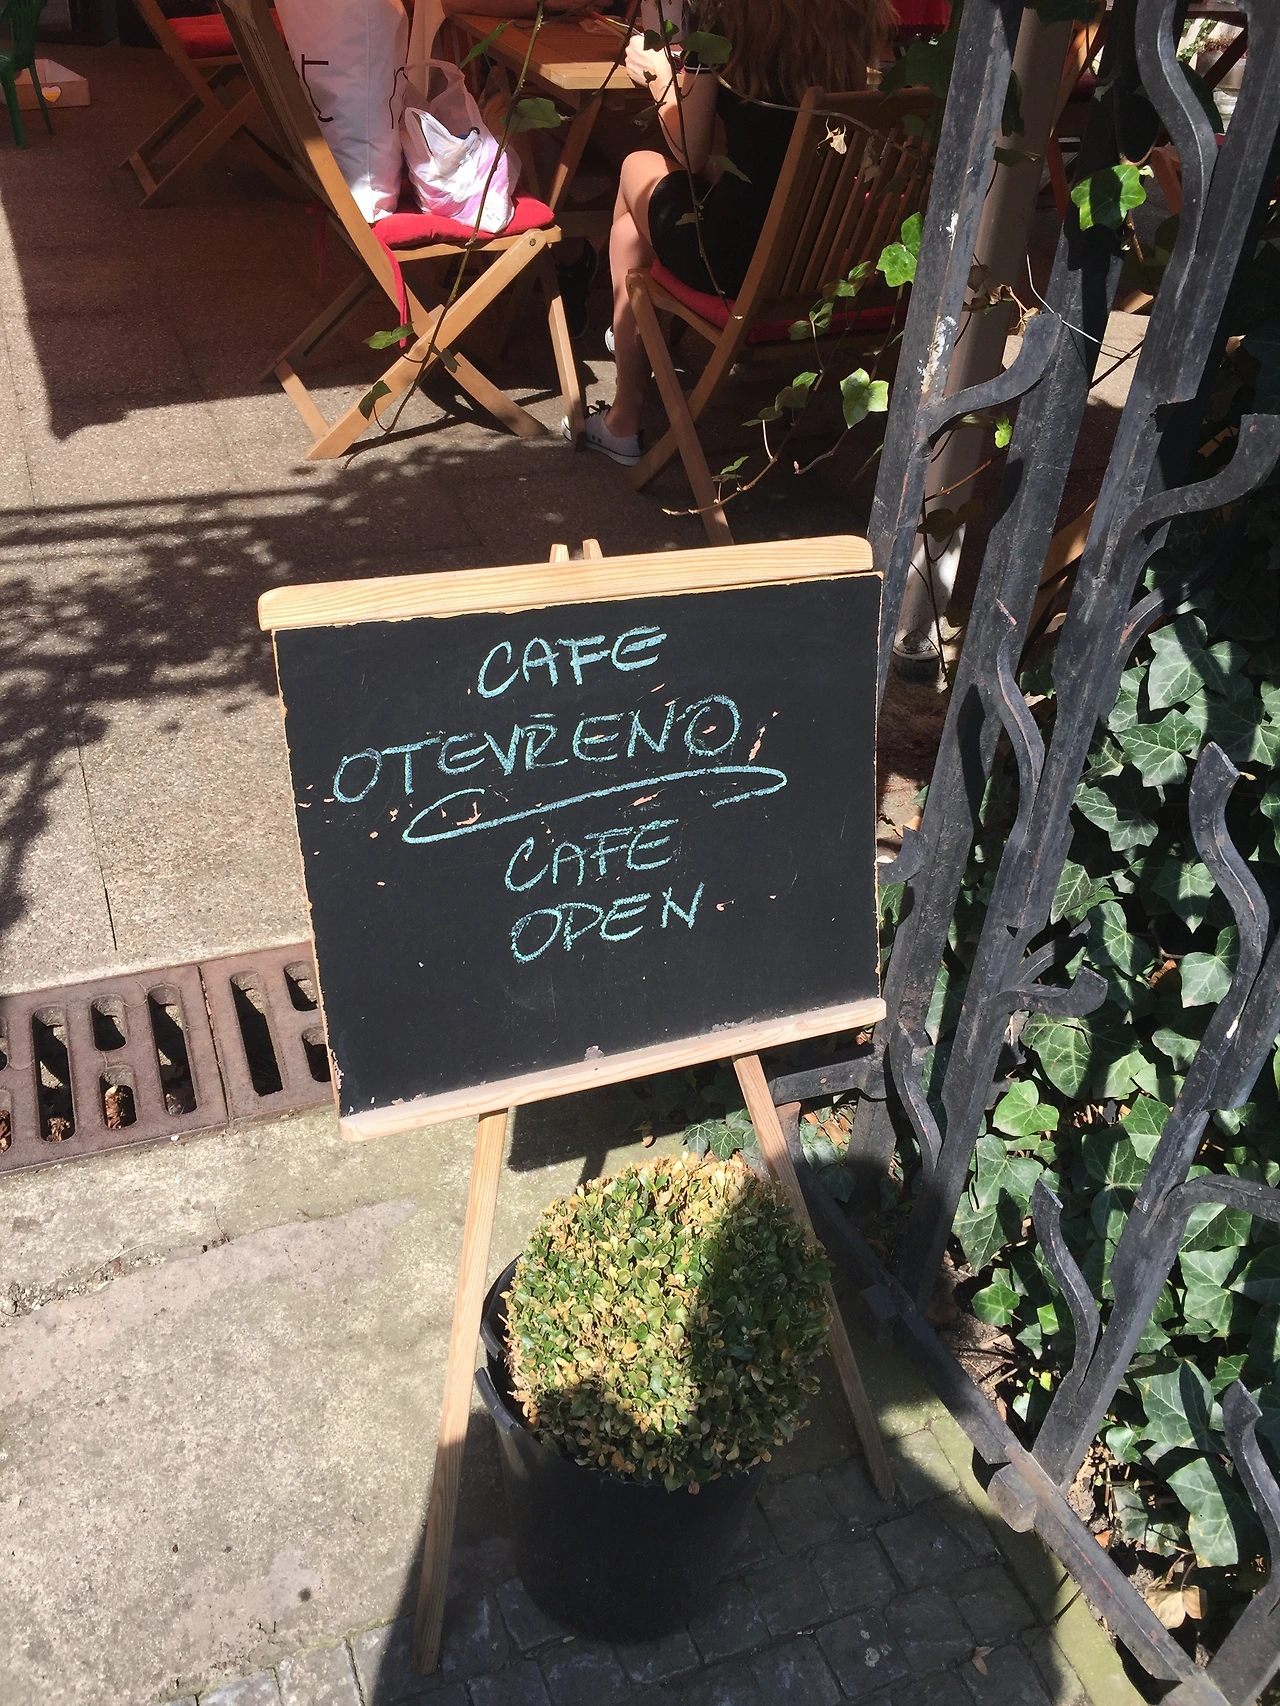 CAFE
OTEVŘENO
CAFE
OPEN